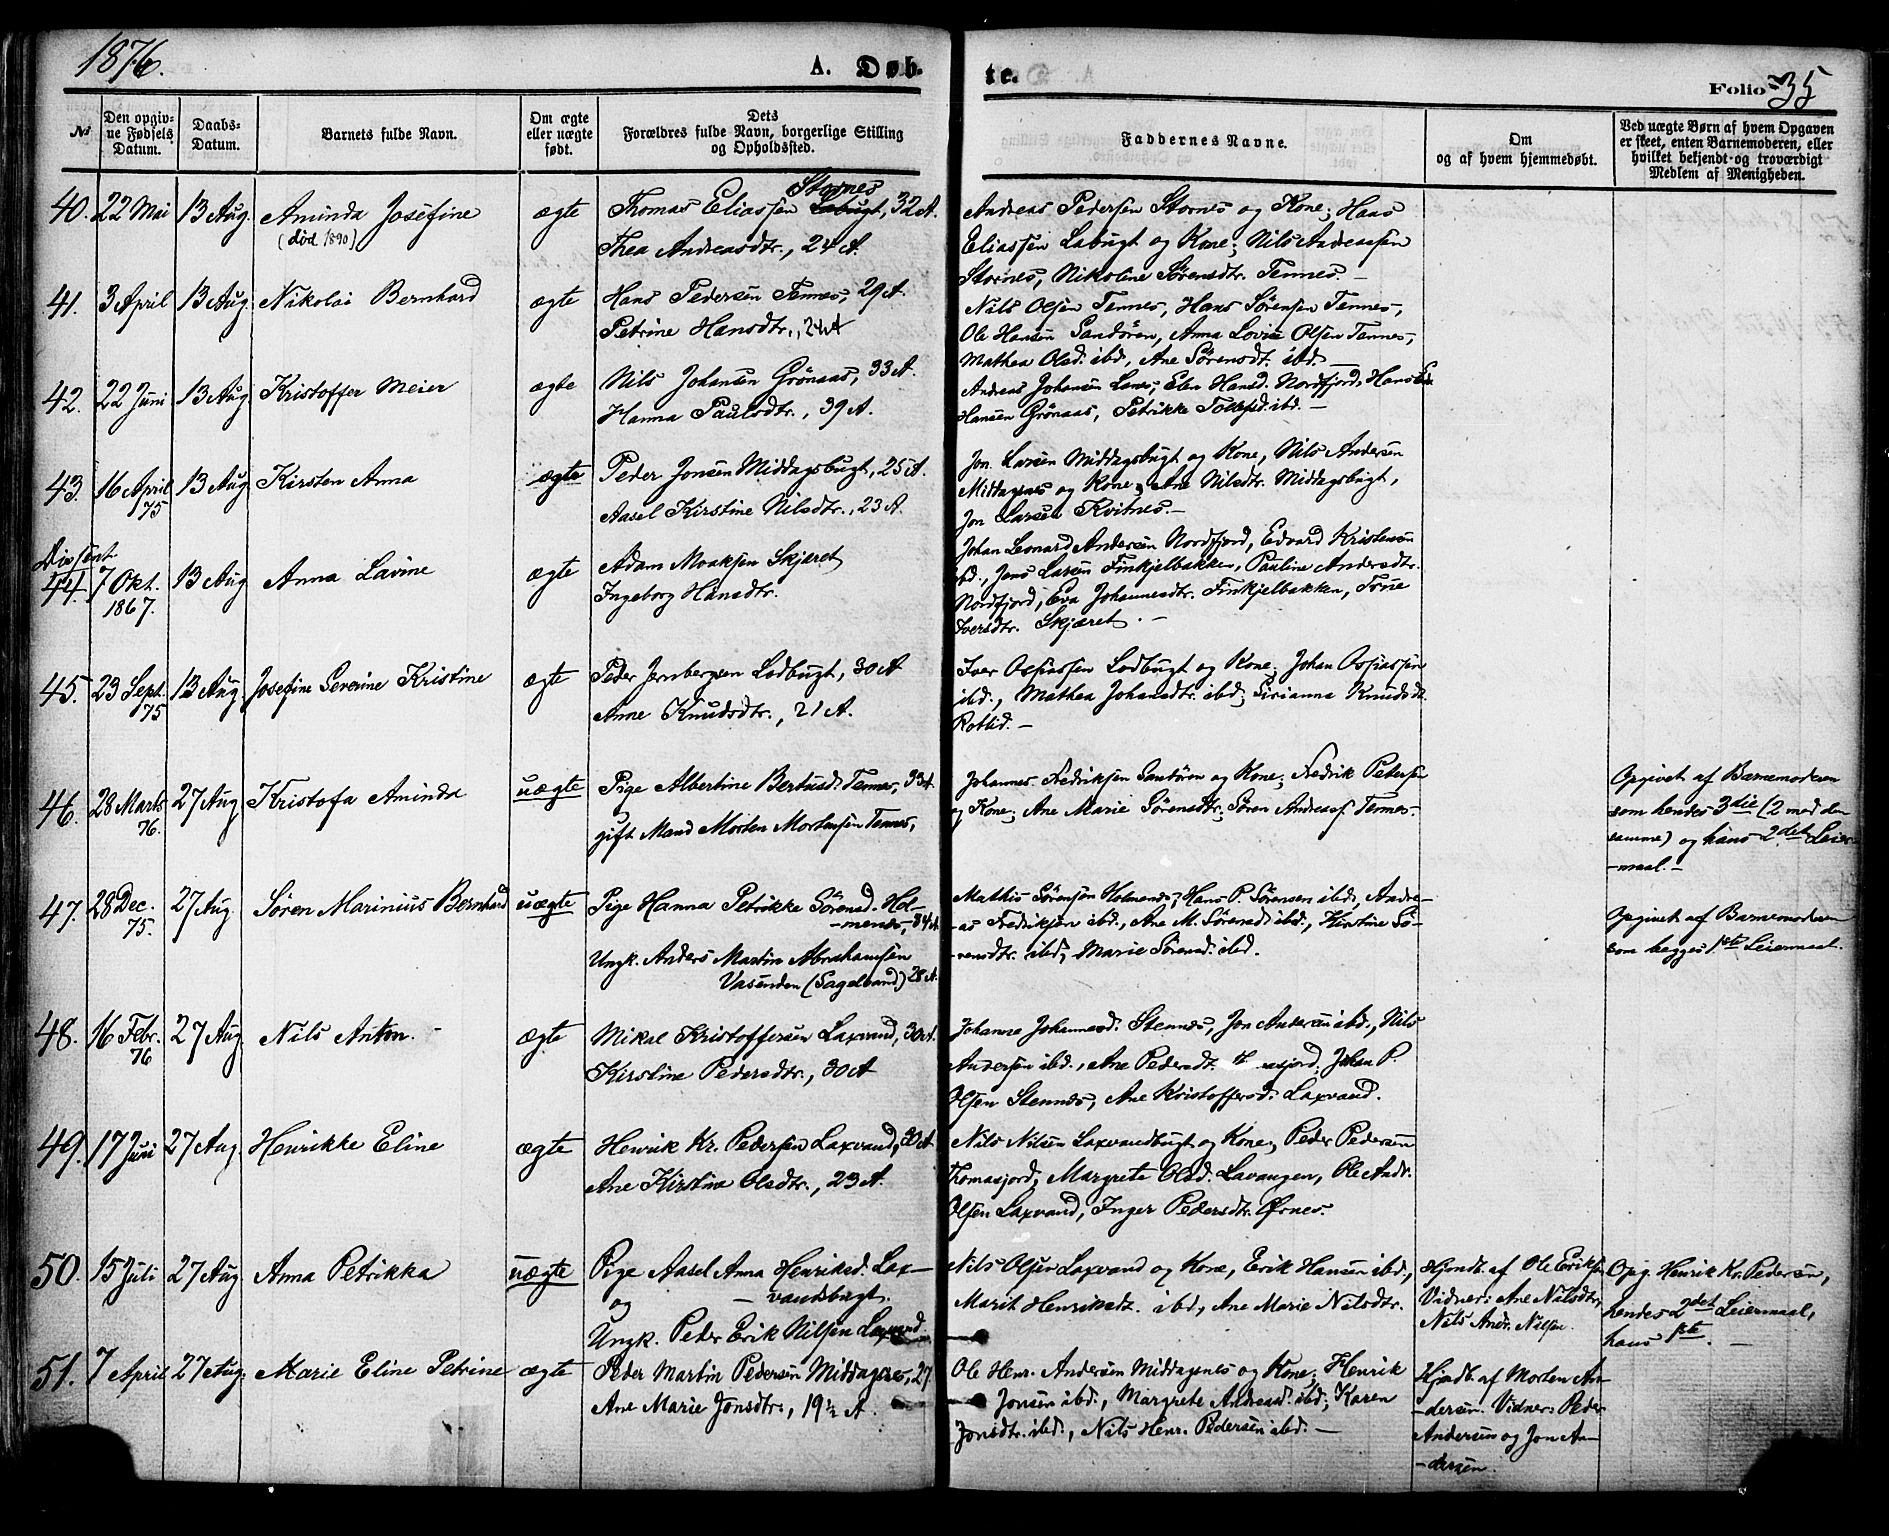 1876.
A. Døb- te.
Folio 35
No
Den opgiv-
ne Fødsels
Datum.
Daabs-
Datum.
Barnets fulde Navn.
Om ægte
eller uægte
født.
Dets
Forældres fulde Navn, borgerlige Stilling
og Opholdssted.
Faddernes Navne.
Om
og af hvem hjemmedøbt.
Ved uægte Børn af hvem Opgaven
er skeet, enten Barnemoderen, eller
hvilket bekjendt og troværdigt
Medlem af Menigheden.
40. 22 Mai 13 Aug. Aminda Josefine
(død 1890)
ægte
Stornes
Thomas Eliassen Labugt, 32 A.
Thea Andreasdtr., 24 A.
Andreas Pedersen Stornes og Kone; Hans
Eliassen Labugt og Kone; Nils Andreassen
Stornes, Nikoline Sørensdtr. Tennes. –
41. 3 April 13 Aug. Nikolai Bernhard
ægte
Hans Pedersen Tennes, 29 A.
Petrine Hansdtr., 24 A
Nils Olsen Tennes, Hans Sørensen Tennes,
Ole Hansen Sandøren, Anna Lovise Olsen Tennes,
Mathea Olsd. ibd, Ane Sørensdt. ibd. –
42. 22 Juni 13 Aug. Kristoffer Meier
ægte
Nils Johansen Grönaas, 33 A.
Hanna Paulsdtr., 39 A.
Andreas Johansen Lanes, Elen Hansd. Nordfjord, Hans
Hansen Grönaas, Petrikke Tollefsd. ibd. –
43. 16 April 75 13 Aug. Kirsten Anna
ægte
Peder Jonsen Middagsbugt, 25 A.
Aasel Kirstine Nilsdtr., 23 A.
Jon Larsen Middagsbugt og Kone, Nils Andersen
Middagsnes og Kone; Ane Nilsdtr. Middagsbugt,
Jon Larsen Kvitnes. –
Dissent.
44. 7 Okt. 1867. 13 Aug. Anna Lavine
ægte
Adam Moaksen Skjæret
Ingeborg Hansdtr.
Johan Leonard Andersen Nordfjord, Edvard Kristensen
ibd., Jens Larsen Finkjelbakken, Pauline Andersdtr.
Nordfjord, Eva Johannesdtr. Finkjelbakken,
Iversdtr. Skjæret. –
45. 23 Sept. 75 13 Aug. Josefine Severine Kristine
ægte
Peder Jernbergsen Lodbugt, 30 A
Anne Knudsdtr., 21 A.
Iver Ossiassen Lodbugt og Kone; Johan Ossiassen
ibd., Mathea Johansdtr. ibd; Sirianna Knudsdt.
46. 28 Marts 76. 27 Aug. Kristofa Aminda
uægte
Pige Albertine Bertusd. Tennes, 33 A.
gift Mand Morten Mortensen Tennes,
Johannes Fredriksen Sandören og Kone; Fredrik Petersen
og Kone; Ane Marie Sörensdtr; Sören Andreass. Tennes.
Opgivet af Barnemoderen
som hendes 3die (2 med den
samme) og hans 2det Leier-
-maal. –
47. 28 Dec. 75. 27 Aug. Søren Marinius Bernhard
uægte
Pige Hanna Petrikke Sörensd. Hol-
-menes, 34 A
Ungk. Anders Martin Abrahamsen
Vasenden (Sagelvand) 28 A.
Mathis Sörensen Holmenes, Hans P. Sörensen ibd, Andre-
-as Fredriksen ibd., Ane M. Sörensd. ibd., Kirstine Sö-
-rensdtr. ibd; Marie Sörensd. ibd.
Opgivet af Barnemoderen
som begges 1ste Leiermaal.
48. 16 Febr. 76 27 Aug. Nils Anton. –
ægte
Mikal Kristoffersen Laxvand, 30 A.
Kirstine Pedersdtr., 30 A
Johanna Johannesd. Stennes, Jon Andersen ibd., Nils
Andersen ibd., Ane Pedersdt. Johan P.
Olsen Stennes, Ane Kristoffersd. Laxvand.
49. 17 Juni 27 Aug. Henrikke Eline
ægte
Henrik Kr. Pedersen Laxvand, 30 A
Ane Kirstine Olsdtr., 23 A.
Nils Nilsen Laxvandbugt og Kone; Peder Pedersen
Thomasjord, Margrete Olsd. Lavangen, Ole Andr.
Olsen Laxvand, Inger Pedersdtr. Örnes.
50. 15 Juli 27 Aug. Anna Petrikka
uægte
Pige Aasel Anna Henriksd. Lax-
-vandsbugt.
og
Ungk. Peder Erik Nilsen Laxvand
Nils Olsen Laxvand og Kone, Erik Hansen ibd.,
Marit Henriksdt. ibd, Ane Marie Nilsdtr.
Hjmdb. af Ole Eriksen
Vidner: Ane Nilsdtr,
Nils Andr. Nilsen.
Opg. Henrik Kr. Pedersen,
hendes 2det Leiermaal,
hans 1ste. –
51. 7 April 27 Aug. Marie Eline Petrine
ægte
Peder Martin Pedersen Middagsnes, 27
Ane Marie Jonsdtr., 19½ A.
Ole Henr. Andersen Middagsnes og Kone; Henrik
Jonsen ibd., Margrete Andreasd. ibd; Karen
Jonsdtr. ibd., Nils Henr. Pedersen ibd. –
Hjmdb. af Morten An-
-dersen. Vidner: Peder
Andersen og Jon An-
-dersen.